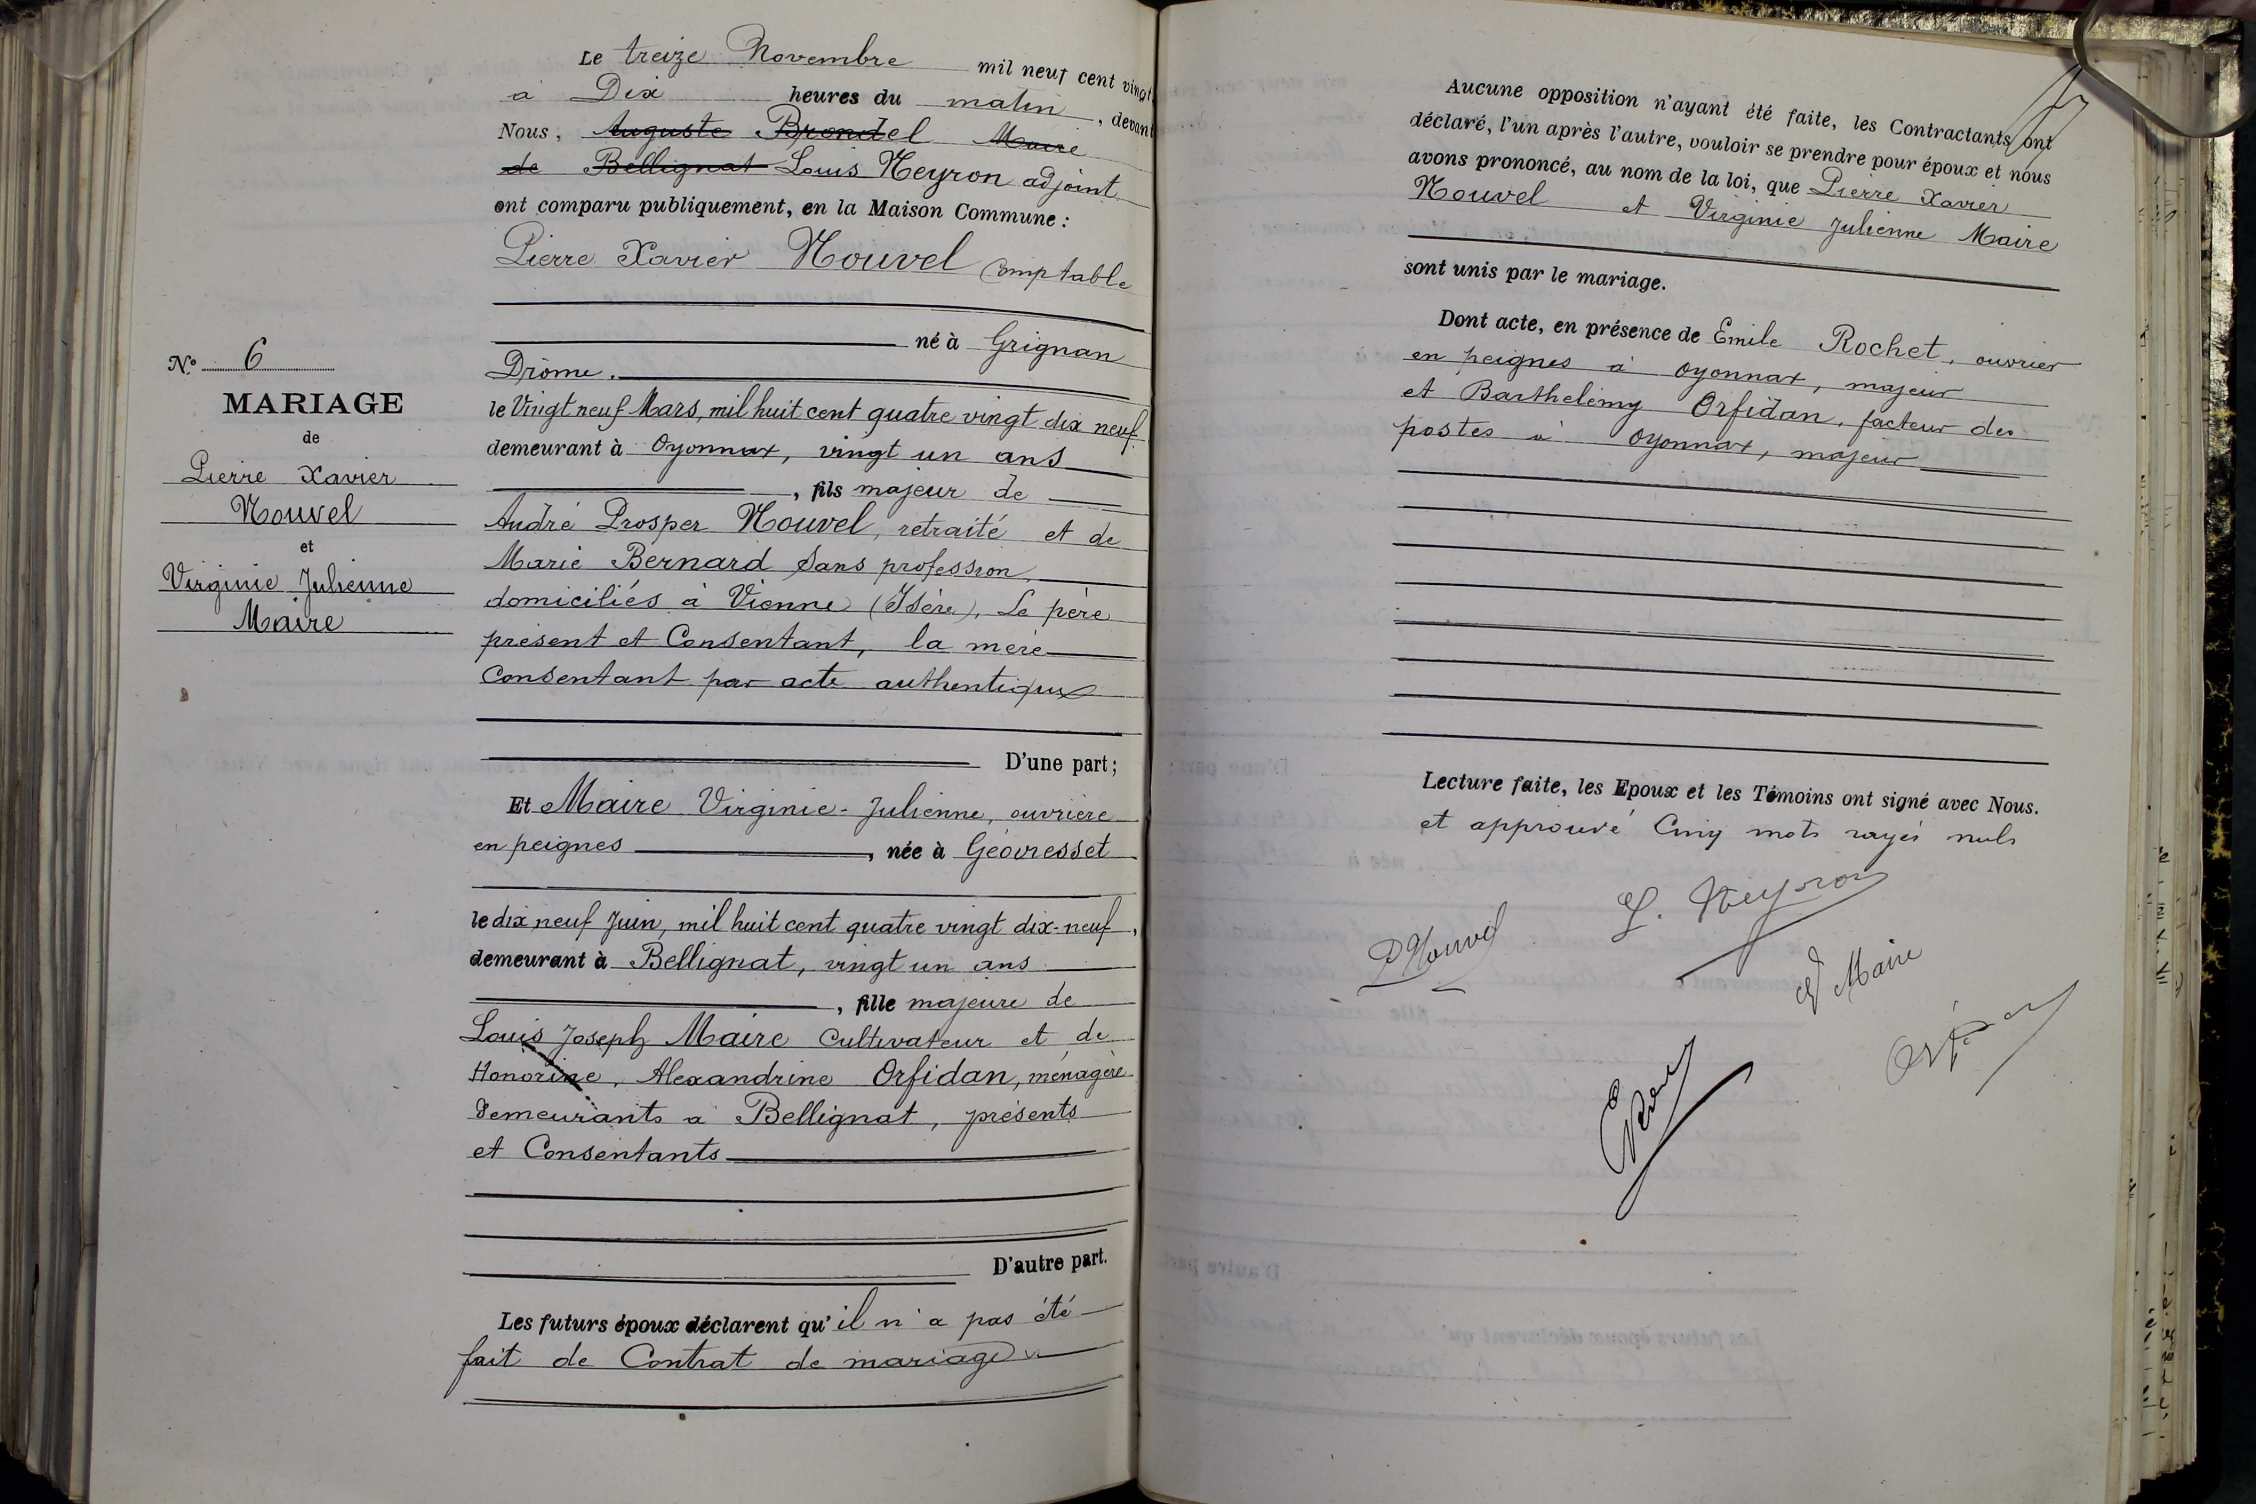 Le treize Novembre mil neuf cent vingt
à Dix heures du matin, devant
Nous, Auguste Brondel Maire
de Bellignat Louis Neyron adjoint
ont comparu publiquement, en la Maison Commune :
Pierre Xavier Nouvel Comptable
né à Grignan
Drôme.
le Vingt neuf Mars, mil huit cent quatre vingt dix neuf
demeurant à Oyonnax, vingt un ans
, fils majeur de
André Prosper Nouvel, retraité et de
Marie Bernard Sans profession,
domiciliés à Vienne (Isère), Le père
présent et Consentant, la mère
Consentant par acte authentique
D'une part ;
Et Maire Virginie-Julienne, ouvrière
en peignes, née à Géovresset
le dix neuf Juin, mil huit cent quatre vingt dix-neuf,
demeurant à Bellignat, vingt un ans
, fille majeure de
Louis Joseph Maire Cultivateur et de
Honorine, Alexandrine Orfidan, ménagère
demeurants à Bellignat, présents
et Consentants
D'autre part.
Les futurs époux déclarent qu'il n'a pas été
fait de Contrat de mariage
N° 6
MARIAGE
de
Pierre Xavier
Nouvel
et
Virginie Julienne
Maire
Aucune opposition n'ayant été faite, les Contractants ont
déclaré, l'un après l'autre, vouloir se prendre pour époux et nous
avons prononcé, au nom de la loi, que Pierre Xavier
Nouvel et Virginie Julienne Maire
sont unis par le mariage.
Dont acte, en présence de Emile Rochet, ouvrier
en peignes à Oyonnax, majeur
et Barthelémy Orfidan, facteur des
postes à Oyonnax, majeur
Lecture faite, les Epoux et les Témoins ont signé avec Nous.
et approuvé Cinq mots rayés nuls
L. Neyron
P Nouvel
V Maire